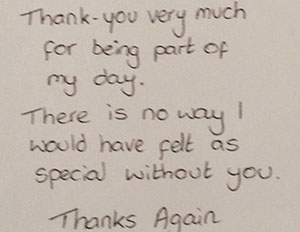 Thank-you very much
for being part of
my day.
There is no way I
would have felt as
special without you.
Thanks Again